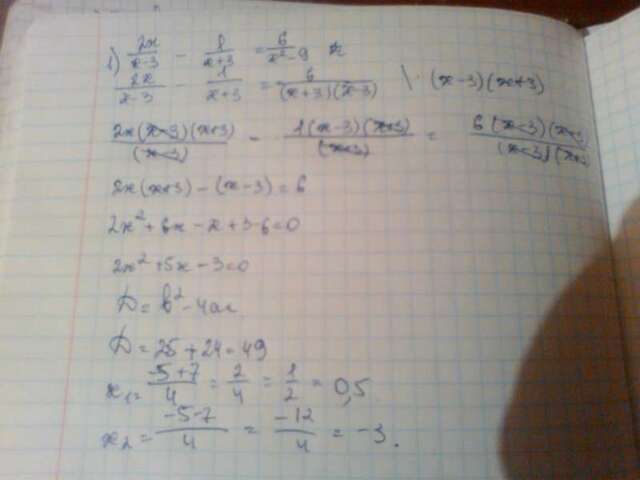 1) 2x/x-3 - 1/x+3 = 6/x²-9
2x/x-3 - 1/x+3 = 6/(x+3)(x-3) \ · (x-3)(x+3)
2x(x-3)(x+3)/(x-3) - 1(x-3)(x+3)/(x+3) = 6(x-3)(x+3)/(x-3)(x+3)
2x(x+3) - (x-3) = 6
2x² + 6x - x + 3 - 6 = 0
2x² + 5x - 3 = 0
D = b² - 4ac
D = 25 + 24 = 49
x₁ = -5+7/4 = 2/4 = 1/2 = 0,5
x₂ = -5-7/4 = -12/4 = -3.